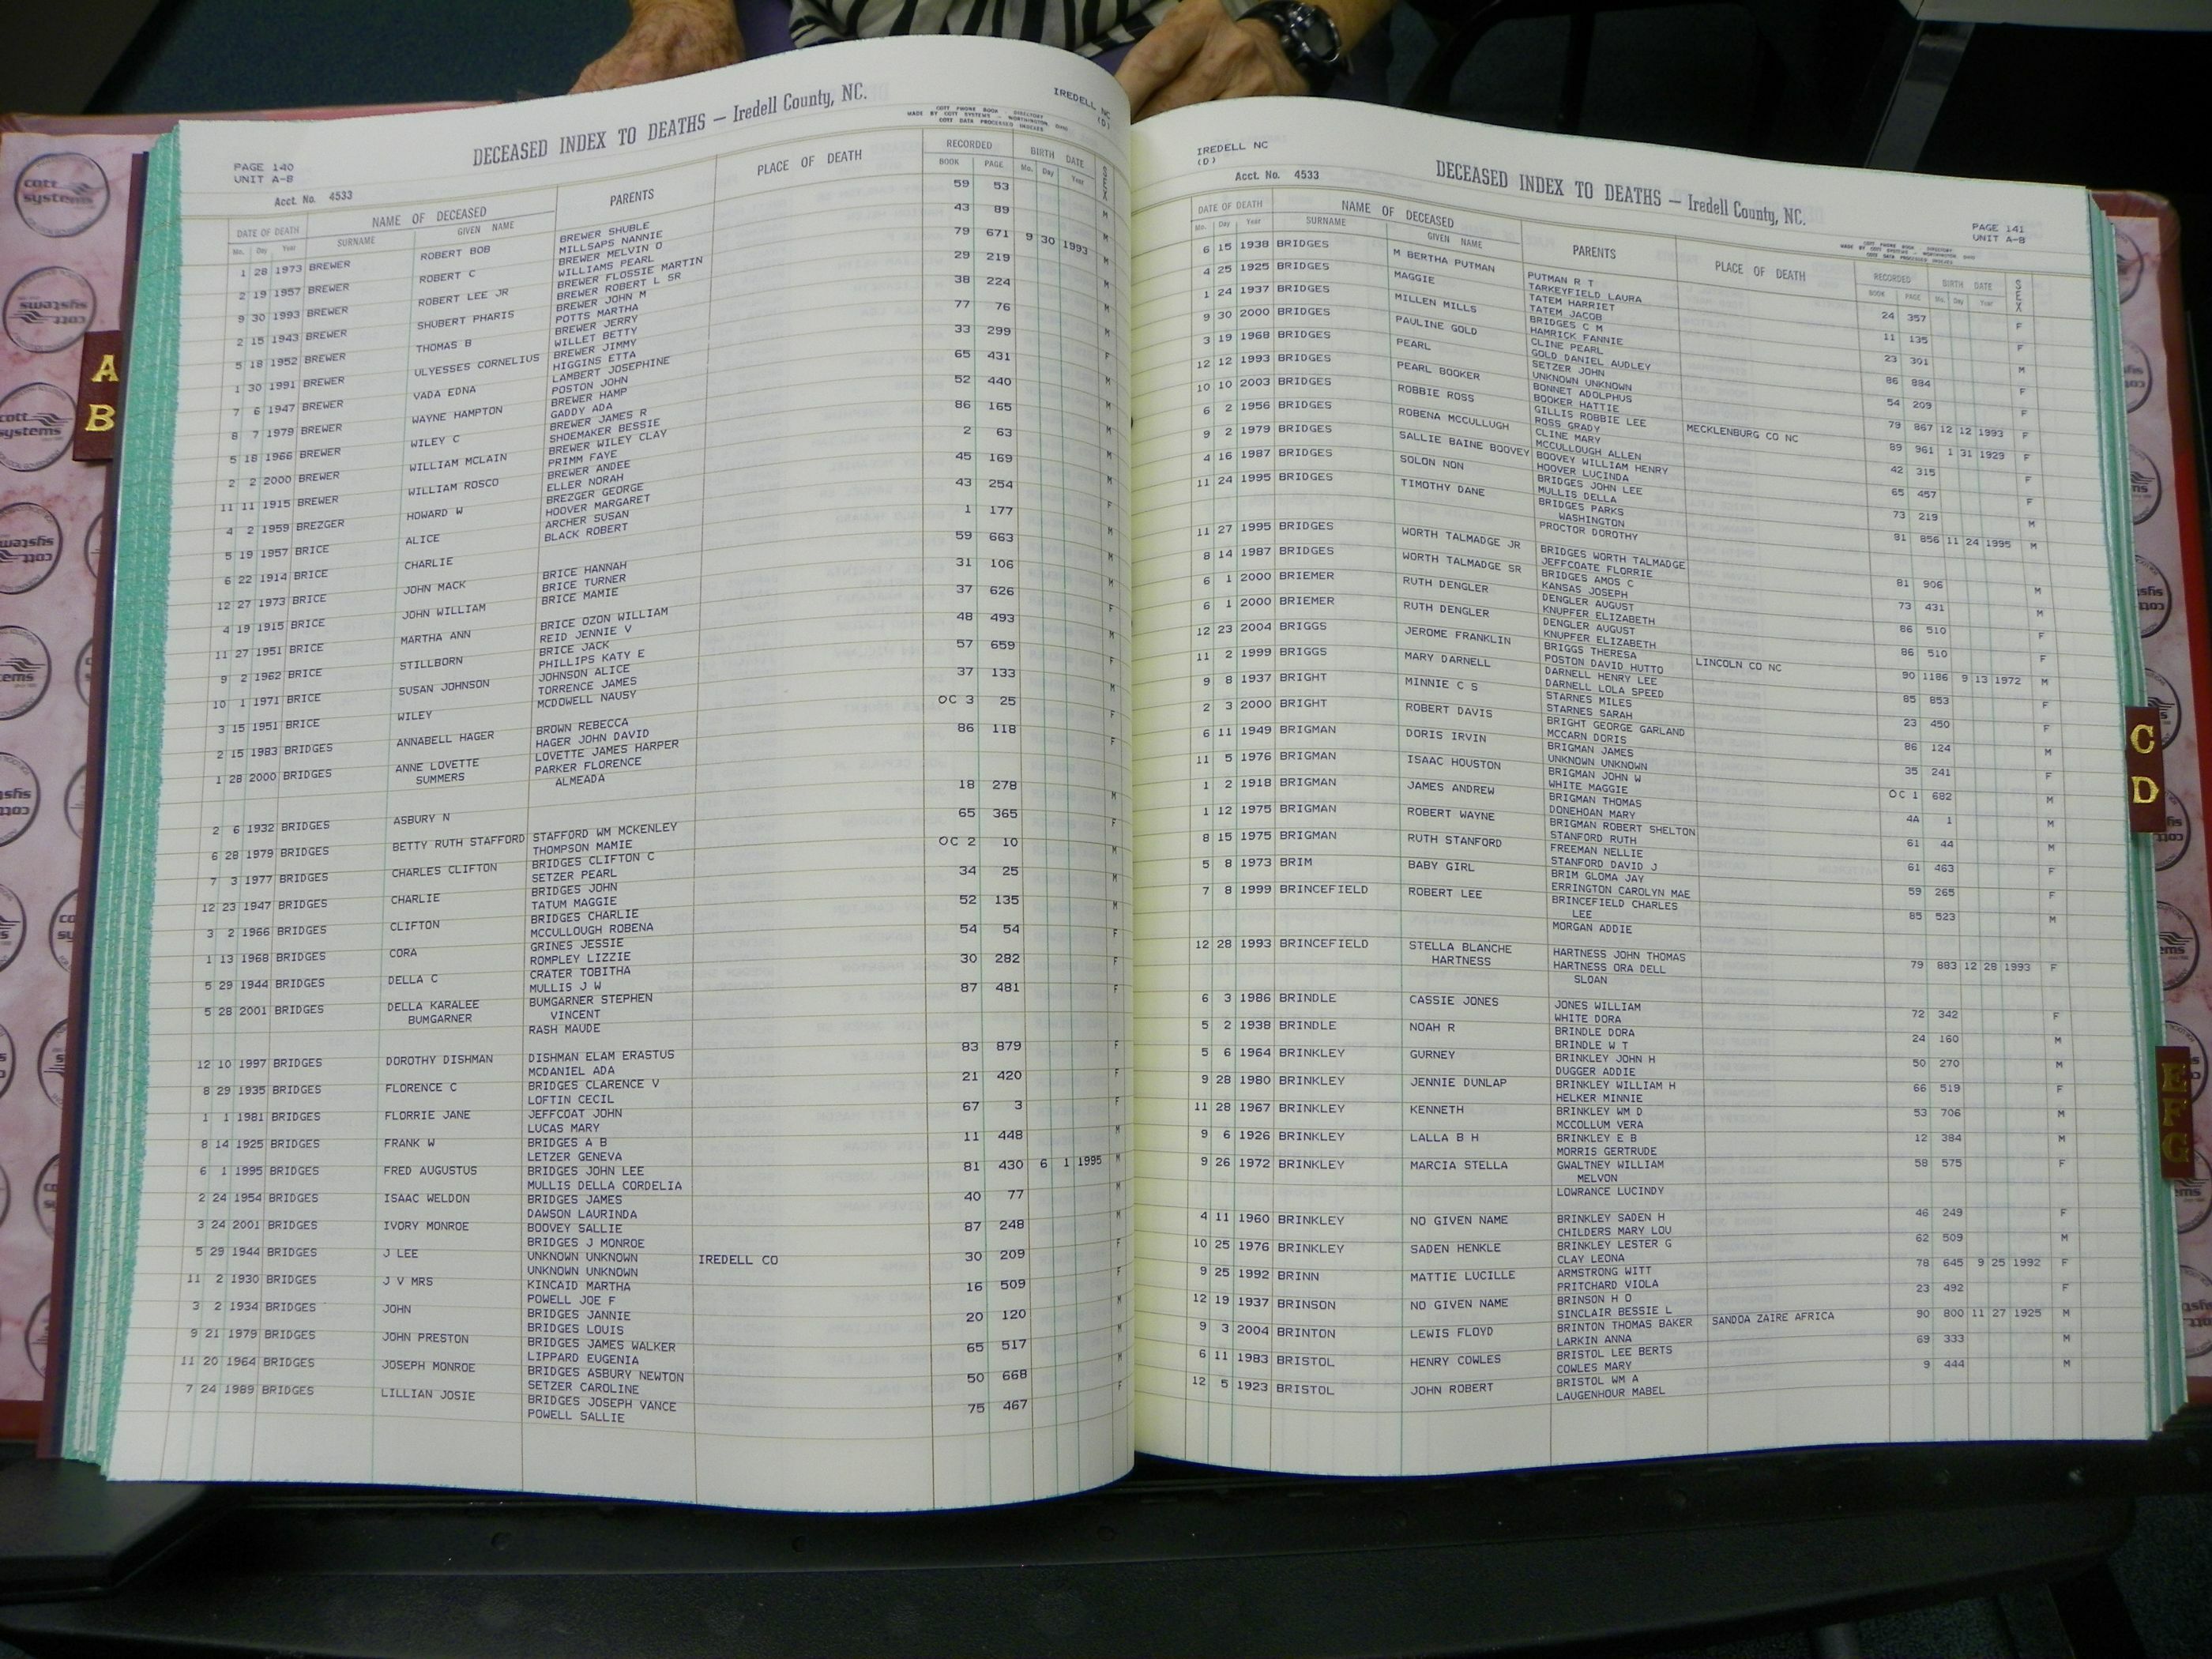 PAGE 140
UNIT A-B
DECEASED INDEX TO DEATHS — Iredell County, NC.
COTT PHONE BOOK DIRECTORY
MADE BY COTT SYSTEMS - WORTHINGTON OHIO
COTT DATA PROCESSED INDEXES
IREDELL NC
(D)
Acct. No. 4533
DATE OF DEATH NAME OF DECEASED PARENTS PLACE OF DEATH RECORDED BIRTH DATE SEX
Mo. Day Year SURNAME GIVEN NAME BOOK PAGE Mo. Day Year
1 28 1973 BREWER ROBERT BOB BREWER SHUBLE 59 53 M
MILLSAPS NANNIE
2 19 1957 BREWER ROBERT C BREWER MELVIN O 43 89 M
WILLIAMS PEARL
9 30 1993 BREWER ROBERT LEE JR BREWER FLOSSIE MARTIN 79 671 9 30 1993 M
BREWER ROBERT L SR
2 15 1943 BREWER SHUBERT PHARIS BREWER JOHN M 29 219 M
POTTS MARTHA
5 18 1952 BREWER THOMAS B BREWER JERRY 38 224 M
WILLET BETTY
1 30 1991 BREWER ULYESSES CORNELIUS BREWER JIMMY 77 76 M
HIGGINS ETTA
7 6 1947 BREWER VADA EDNA LAMBERT JOSEPHINE 33 299 F
POSTON JOHN
8 7 1979 BREWER WAYNE HAMPTON BREWER HAMP 65 431 M
GADDY ADA
5 18 1966 BREWER WILEY C BREWER JAMES R 52 440 M
SHOEMAKER BESSIE
2 2 2000 BREWER WILLIAM MCLAIN BREWER WILEY CLAY 86 165 M
PRIMM FAYE
11 11 1915 BREWER WILLIAM ROSCO BREWER ANDEE 2 63 M
ELLER NORAH
4 2 1959 BREZGER HOWARD W BREZGER GEORGE 45 169 M
HOOVER MARGARET
5 19 1957 BRICE ALICE ARCHER SUSAN 43 254 F
BLACK ROBERT
6 22 1914 BRICE CHARLIE 1 177 M
12 27 1973 BRICE JOHN MACK BRICE HANNAH 59 663 M
BRICE TURNER
4 19 1915 BRICE JOHN WILLIAM BRICE MAMIE 31 106 M
11 27 1951 BRICE MARTHA ANN BRICE OZON WILLIAM 37 626 F
REID JENNIE V
9 2 1962 BRICE STILLBORN BRICE JACK 48 493 M
PHILLIPS KATY E
10 1 1971 BRICE SUSAN JOHNSON JOHNSON ALICE 57 659 F
TORRENCE JAMES
3 15 1951 BRICE WILEY MCDOWELL NAUSY 37 133 M
2 15 1983 BRIDGES ANNABELL HAGER BROWN REBECCA OC 3 25 F
HAGER JOHN DAVID
1 28 2000 BRIDGES ANNE LOVETTE LOVETTE JAMES HARPER 86 118 F
SUMMERS PARKER FLORENCE
ALMEADA
2 6 1932 BRIDGES ASBURY N 18 278 M
6 28 1979 BRIDGES BETTY RUTH STAFFORD STAFFORD WM MCKENLEY 65 365 F
THOMPSON MAMIE
7 3 1977 BRIDGES CHARLES CLIFTON BRIDGES CLIFTON C OC 2 10 M
SETZER PEARL
12 23 1947 BRIDGES CHARLIE BRIDGES JOHN 34 25 M
TATUM MAGGIE
3 2 1966 BRIDGES CLIFTON BRIDGES CHARLIE 52 135 M
MCCULLOUGH ROBENA
1 13 1968 BRIDGES CORA GRINES JESSIE 54 54 F
ROMPLEY LIZZIE
5 29 1944 BRIDGES DELLA C CRATER TOBITHA 30 282 F
MULLIS J W
5 28 2001 BRIDGES DELLA KARALEE BUMGARNER STEPHEN 87 481 F
BUMGARNER VINCENT
RASH MAUDE
12 10 1997 BRIDGES DOROTHY DISHMAN DISHMAN ELAM ERASTUS 83 879 F
MCDANIEL ADA
8 29 1935 BRIDGES FLORENCE C BRIDGES CLARENCE V 21 420 F
LOFTIN CECIL
1 1 1981 BRIDGES FLORRIE JANE JEFFCOAT JOHN 67 3 F
LUCAS MARY
8 14 1925 BRIDGES FRANK W BRIDGES A B 11 448 M
LETZER GENEVA
6 1 1995 BRIDGES FRED AUGUSTUS BRIDGES JOHN LEE 81 430 6 1 1995 M
MULLIS DELLA CORDELIA
2 24 1954 BRIDGES ISAAC WELDON BRIDGES JAMES 40 77 M
DAWSON LAURINDA
3 24 2001 BRIDGES IVORY MONROE BOOVEY SALLIE 87 248 M
BRIDGES J MONROE
5 29 1944 BRIDGES J LEE UNKNOWN UNKNOWN IREDELL CO 30 209 F
UNKNOWN UNKNOWN
11 2 1930 BRIDGES J V MRS KINCAID MARTHA 16 509 F
POWELL JOE F
3 2 1934 BRIDGES JOHN BRIDGES JANNIE 20 120 M
BRIDGES LOUIS
9 21 1979 BRIDGES JOHN PRESTON BRIDGES JAMES WALKER 65 517 M
LIPPARD EUGENIA
11 20 1964 BRIDGES JOSEPH MONROE BRIDGES ASBURY NEWTON 50 668 M
SETZER CAROLINE
7 24 1989 BRIDGES LILLIAN JOSIE BRIDGES JOSEPH VANCE 75 467 F
POWELL SALLIE
IREDELL NC
(D)
Acct. No. 4533
DECEASED INDEX TO DEATHS — Iredell County, NC.
PAGE 141
UNIT A-B
COTT PHONE BOOK DIRECTORY
MADE BY COTT SYSTEMS - WORTHINGTON OHIO
COTT DATA PROCESSED INDEXES
DATE OF DEATH NAME OF DECEASED PARENTS PLACE OF DEATH RECORDED BIRTH DATE SEX
Mo. Day Year SURNAME GIVEN NAME BOOK PAGE Mo. Day Year
6 15 1938 BRIDGES M BERTHA PUTMAN PUTMAN R T 24 357 F
TARKEYFIELD LAURA
4 25 1925 BRIDGES MAGGIE TATEM HARRIET 11 135 F
TATEM JACOB
1 24 1937 BRIDGES MILLEN MILLS BRIDGES C M 23 301 M
HAMRICK FANNIE
9 30 2000 BRIDGES PAULINE GOLD CLINE PEARL 86 884 F
GOLD DANIEL AUDLEY
3 19 1968 BRIDGES PEARL SETZER JOHN 54 209 F
UNKNOWN UNKNOWN
12 12 1993 BRIDGES PEARL BOOKER BONNET ADOLPHUS MECKLENBURG CO NC 79 867 12 12 1993 F
BOOKER HATTIE
10 10 2003 BRIDGES ROBBIE ROSS GILLIS ROBBIE LEE 89 961 1 31 1929 F
ROSS GRADY
6 2 1956 BRIDGES ROBENA MCCULLUGH CLINE MARY 42 315 F
MCCULLOUGH ALLEN
9 2 1979 BRIDGES SALLIE BAINE BOOVEY BOOVEY WILLIAM HENRY 65 457 F
HOOVER LUCINDA
4 16 1987 BRIDGES SOLON NON BRIDGES JOHN LEE 73 219 M
MULLIS DELLA
11 24 1995 BRIDGES TIMOTHY DANE BRIDGES PARKS 81 856 11 24 1995 M
WASHINGTON
PROCTOR DOROTHY
11 27 1995 BRIDGES WORTH TALMADGE JR BRIDGES WORTH TALMADGE 81 906 M
JEFFCOATE FLORRIE
8 14 1987 BRIDGES WORTH TALMADGE SR BRIDGES AMOS C 73 431 M
KANSAS JOSEPH
6 1 2000 BRIEMER RUTH DENGLER DENGLER AUGUST 86 510 F
KNUPFER ELIZABETH
6 1 2000 BRIEMER RUTH DENGLER DENGLER AUGUST 86 510 F
KNUPFER ELIZABETH
12 23 2004 BRIGGS JEROME FRANKLIN BRIGGS THERESA LINCOLN CO NC 90 1186 9 13 1972 M
POSTON DAVID HUTTO
11 2 1999 BRIGGS MARY DARNELL DARNELL HENRY LEE 85 853 F
DARNELL LOLA SPEED
9 8 1937 BRIGHT MINNIE C S STARNES MILES 23 450 F
STARNES SARAH
2 3 2000 BRIGHT ROBERT DAVIS BRIGHT GEORGE GARLAND 86 124 M
MCCARN DORIS
6 11 1949 BRIGMAN DORIS IRVIN BRIGMAN JAMES 35 241 F
UNKNOWN UNKNOWN
11 5 1976 BRIGMAN ISAAC HOUSTON BRIGMAN JOHN W OC 1 682 M
WHITE MAGGIE
1 2 1918 BRIGMAN JAMES ANDREW BRIGMAN THOMAS 4A 1 M
DONEHOAN MARY
1 12 1975 BRIGMAN ROBERT WAYNE BRIGMAN ROBERT SHELTON 61 44 M
STANFORD RUTH
8 15 1975 BRIGMAN RUTH STANFORD FREEMAN NELLIE 61 463 F
STANFORD DAVID J
5 8 1973 BRIM BABY GIRL BRIM GLOMA JAY 59 265 F
ERRINGTON CAROLYN MAE
7 8 1999 BRINCEFIELD ROBERT LEE BRINCEFIELD CHARLES 85 523 M
LEE
MORGAN ADDIE
12 28 1993 BRINCEFIELD STELLA BLANCHE HARTNESS JOHN THOMAS 79 883 12 28 1993 F
HARTNESS HARTNESS ORA DELL
SLOAN
6 3 1986 BRINDLE CASSIE JONES JONES WILLIAM 72 342 F
WHITE DORA
5 2 1938 BRINDLE NOAH R BRINDLE DORA 24 160 M
BRINDLE W T
5 6 1964 BRINKLEY GURNEY BRINKLEY JOHN H 50 270 M
DUGGER ADDIE
9 28 1980 BRINKLEY JENNIE DUNLAP BRINKLEY WILLIAM H 66 519 F
HELKER MINNIE
11 28 1967 BRINKLEY KENNETH BRINKLEY WM D 53 706 M
MCCOLLUM VERA
9 6 1926 BRINKLEY LALLA B H BRINKLEY E B 12 384 M
MORRIS GERTRUDE
9 26 1972 BRINKLEY MARCIA STELLA GWALTNEY WILLIAM 58 575 F
MELVON
LOWRANCE LUCINDY
4 11 1960 BRINKLEY NO GIVEN NAME BRINKLEY SADEN H 46 249 F
CHILDERS MARY LOU
10 25 1976 BRINKLEY SADEN HENKLE BRINKLEY LESTER G 62 509 M
CLAY LEONA
9 25 1992 BRINN MATTIE LUCILLE ARMSTRONG WITT 78 645 9 25 1992 F
PRITCHARD VIOLA
12 19 1937 BRINSON NO GIVEN NAME BRINSON H O 23 492 F
SINCLAIR BESSIE L
9 3 2004 BRINTON LEWIS FLOYD BRINTON THOMAS BAKER SANDOA ZAIRE AFRICA 90 800 11 27 1925 M
LARKIN ANNA
6 11 1983 BRISTOL HENRY COWLES BRISTOL LEE BERTS 69 333 M
COWLES MARY
12 5 1923 BRISTOL JOHN ROBERT BRISTOL WM A 9 444 M
LAUGENHOUR MABEL
A
B
C
D
E
F
G
cott
systems